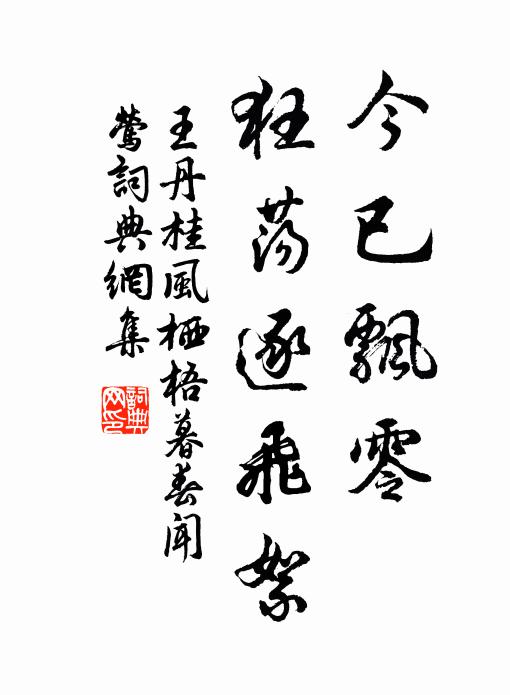 今已飄零
狂蕩逐飛絮
王丹桂風栖梧暮春聞
鶯詞典網集
詞典
网印